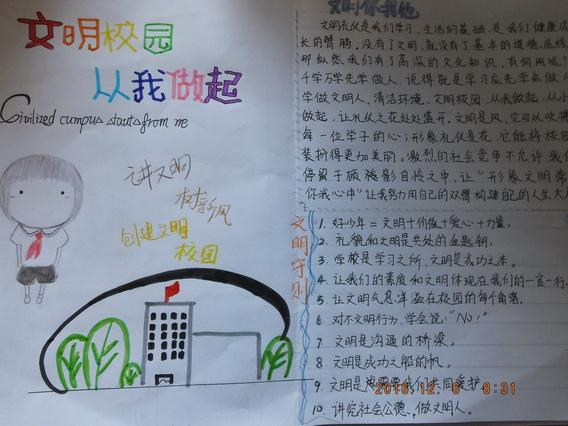 文明校园
从我做起
Civilized cumpus starts from me
讲文明
树新风
创建文明
校园
文明你我他
文明礼仪是我们学习、生活的基础,是我们健康成
长的臂膀。没有了文明,就没有了基本的道德底线
那纵然我们有了高深的文化知识,有何用呢?
千学万学先学做人,说得就是学习应先学会做人
学做文明人,清洁环境,文明校园,从我做起,从小
做起,让礼仪之花处处盛开。文明是风,它可以吹拂
每一位学子的心;形象礼仪是花,它能将校园
装扮得更加美丽。激烈的社会竞争不允许我们
停留于顾影自怜之中,让“形象文明常
你我心中”让我努力用自己的双臂构建自己的人生大
文明守则
1. 好少年=文明+价值+爱心+力量。
2. 礼貌和文明是共处的金钥匙。
3. 学校是学习之所,文明是成功之本。
4. 让我们的素质和文明体现在我们的一言一行
5. 让文明气息洋溢在校园的每个角落。
6. 对不文明行为,学会说:“NO!”
7. 文明是沟通的桥梁。
8. 文明是成功之船的帆。
9 文明是需要我们共同维护
10. 讲究社会公德,做文明人。
8:31